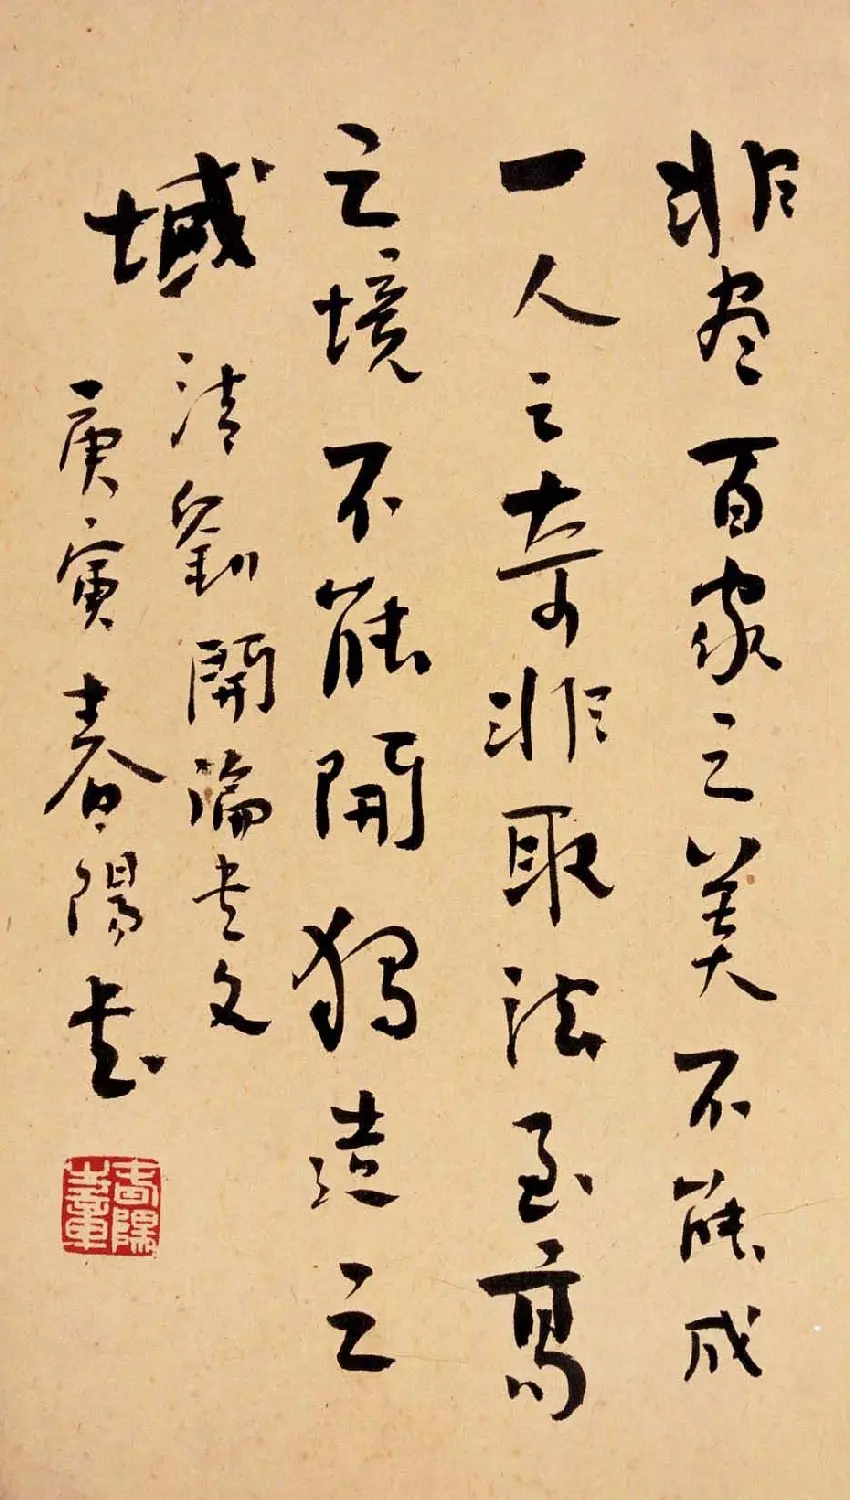 非尽百家之美不能成
一人之奇非取法至高
之境不能開獨造之
域 清劉開論書文
庚寅春陽書
春陽之章